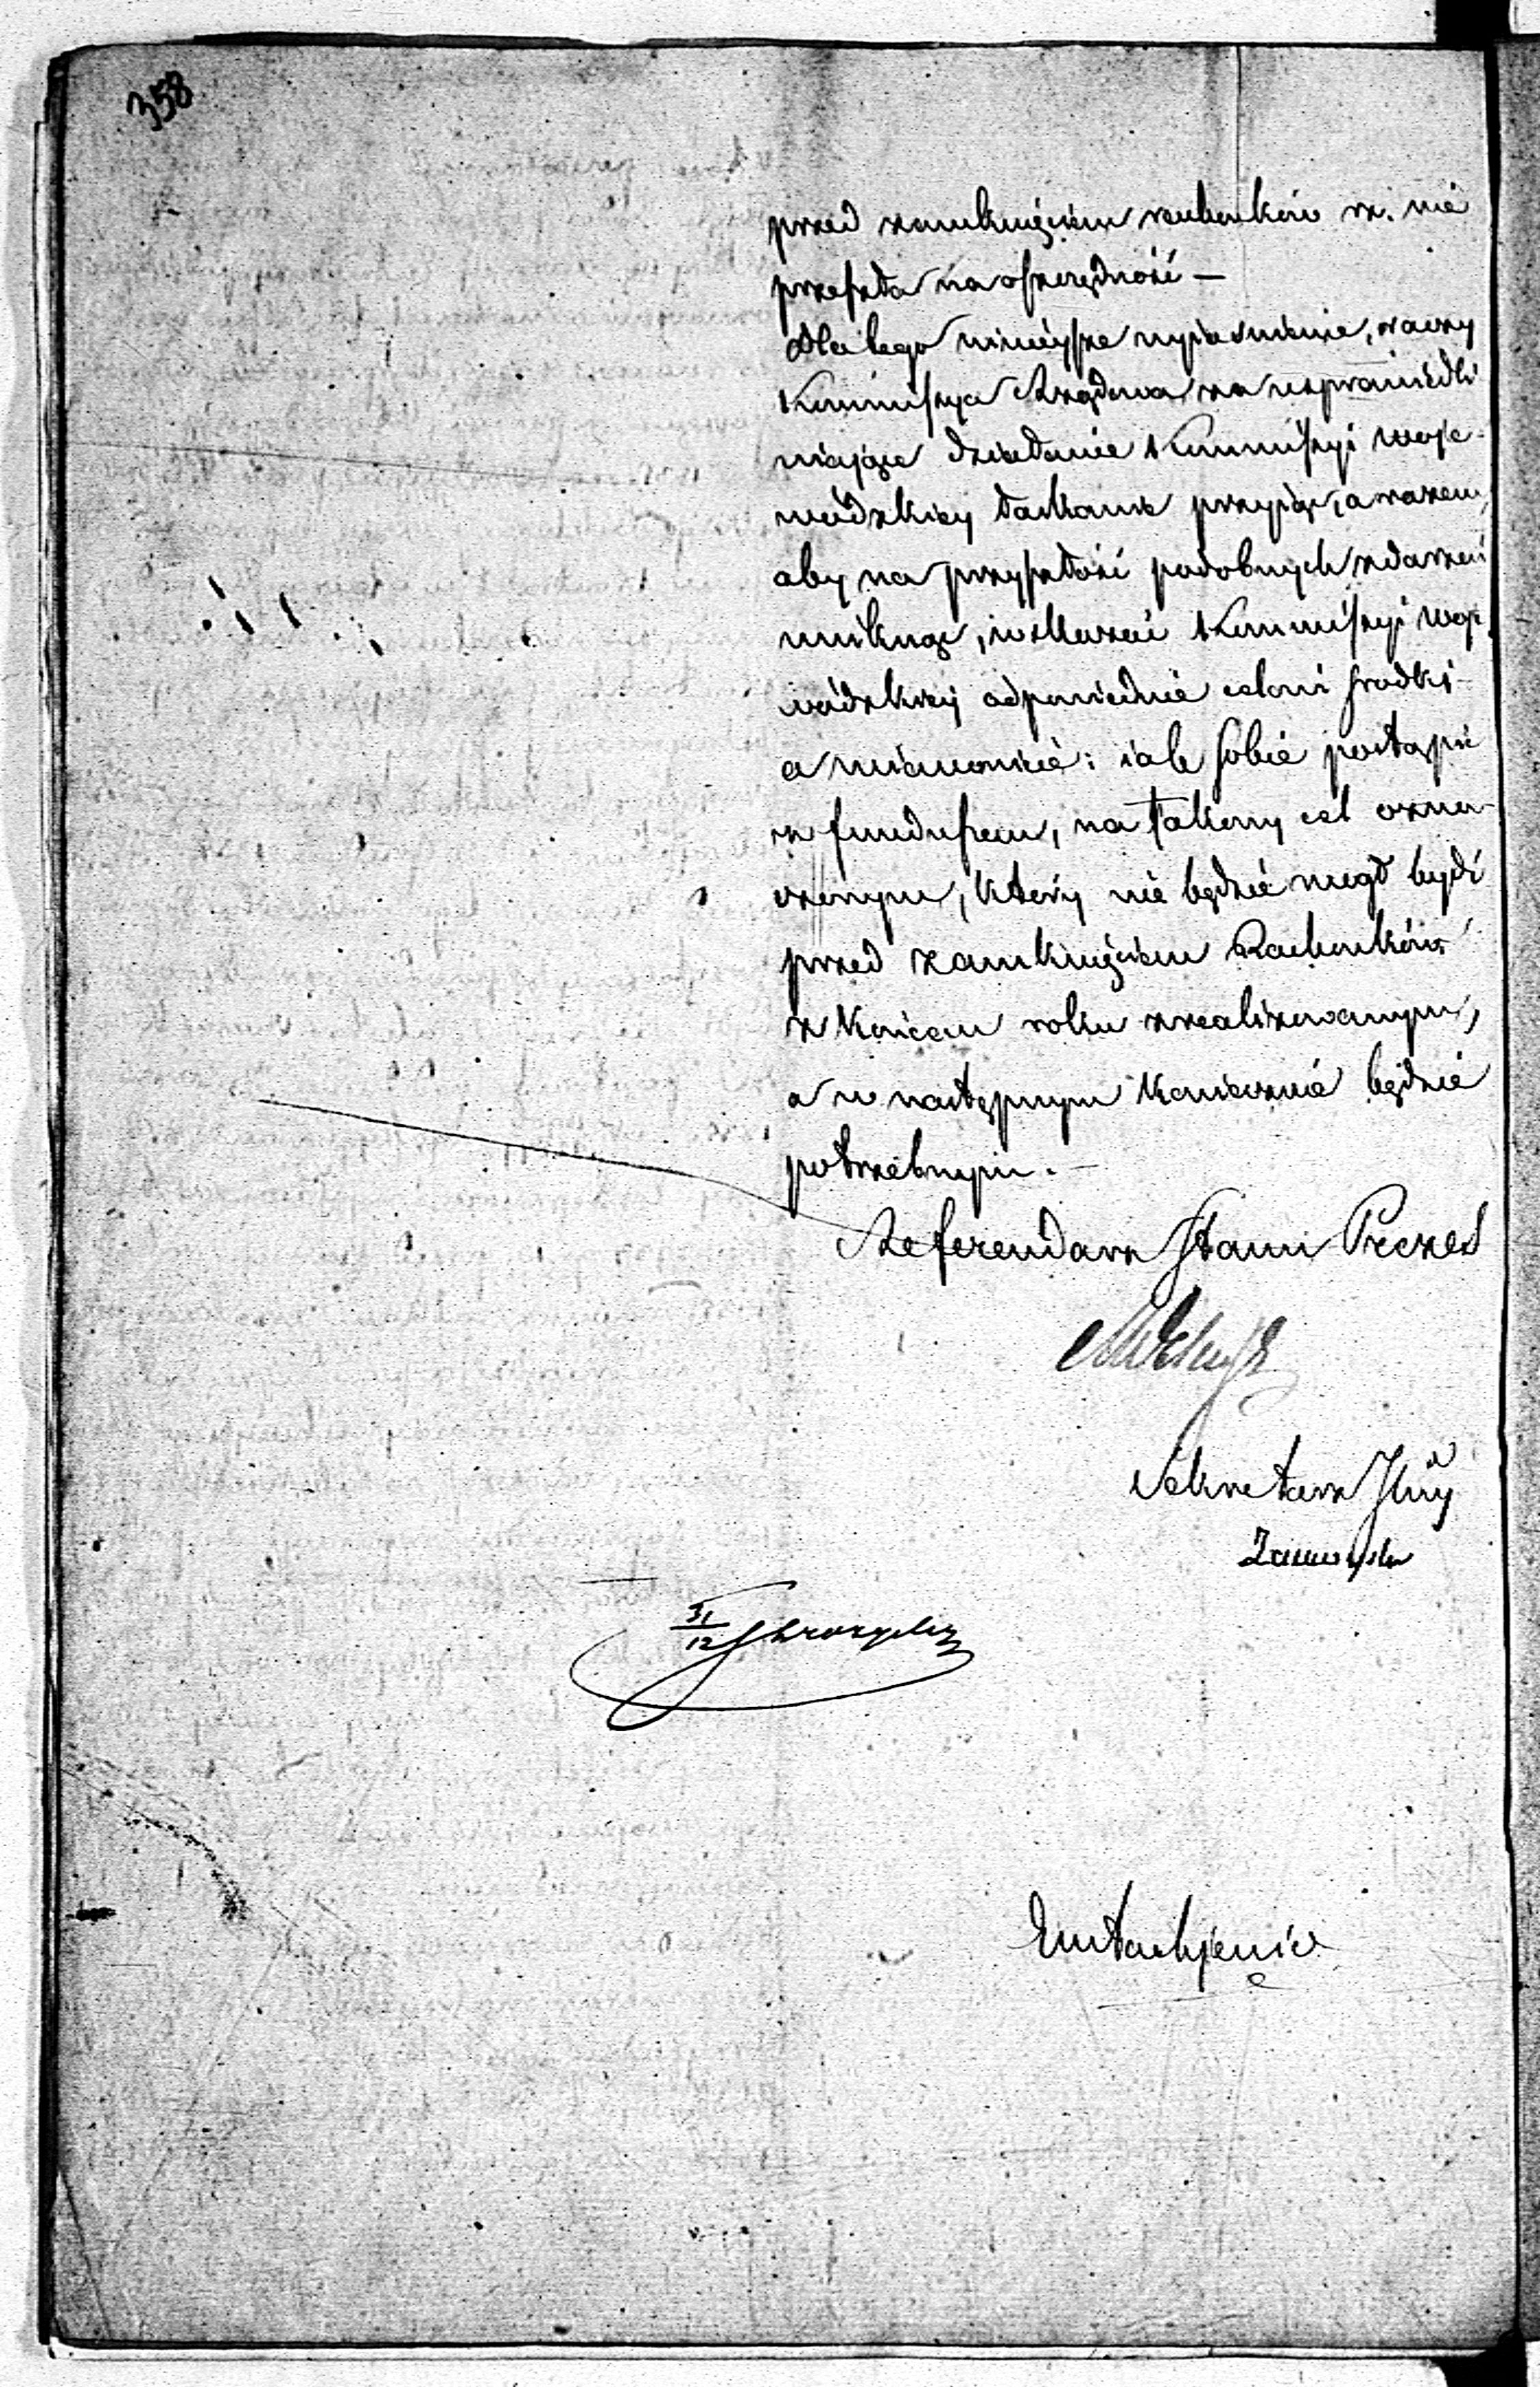 358
przed zamknięciem rachunków rz. nie
przeszła na oszczędność —
Dla tego ninieysze wyiaśnienie, raczy
Kommissya Rządowa za usprawiedli
wiaiące działanie Kommissyi Woje-
wódzkiey łaskawie przyiąć, a razem,
aby na przyszłość podobnych zdarzeń
uniknąć, wskazać Kommissyi Woje
wódzkiey odpowiednie celowi srodki-
a mianowicie: iak sobie postąpić
z funduszem, na takowy cel ozna-
czonym, który nie będzie mógł bydź
przed zamknięciem Rachunków
z końcem roku zrealizowanym,
a w następnym koniecznie będzie
potrzebnym. —
Referendarz Stanu Prezes
Sekretarz Jlny
31/12